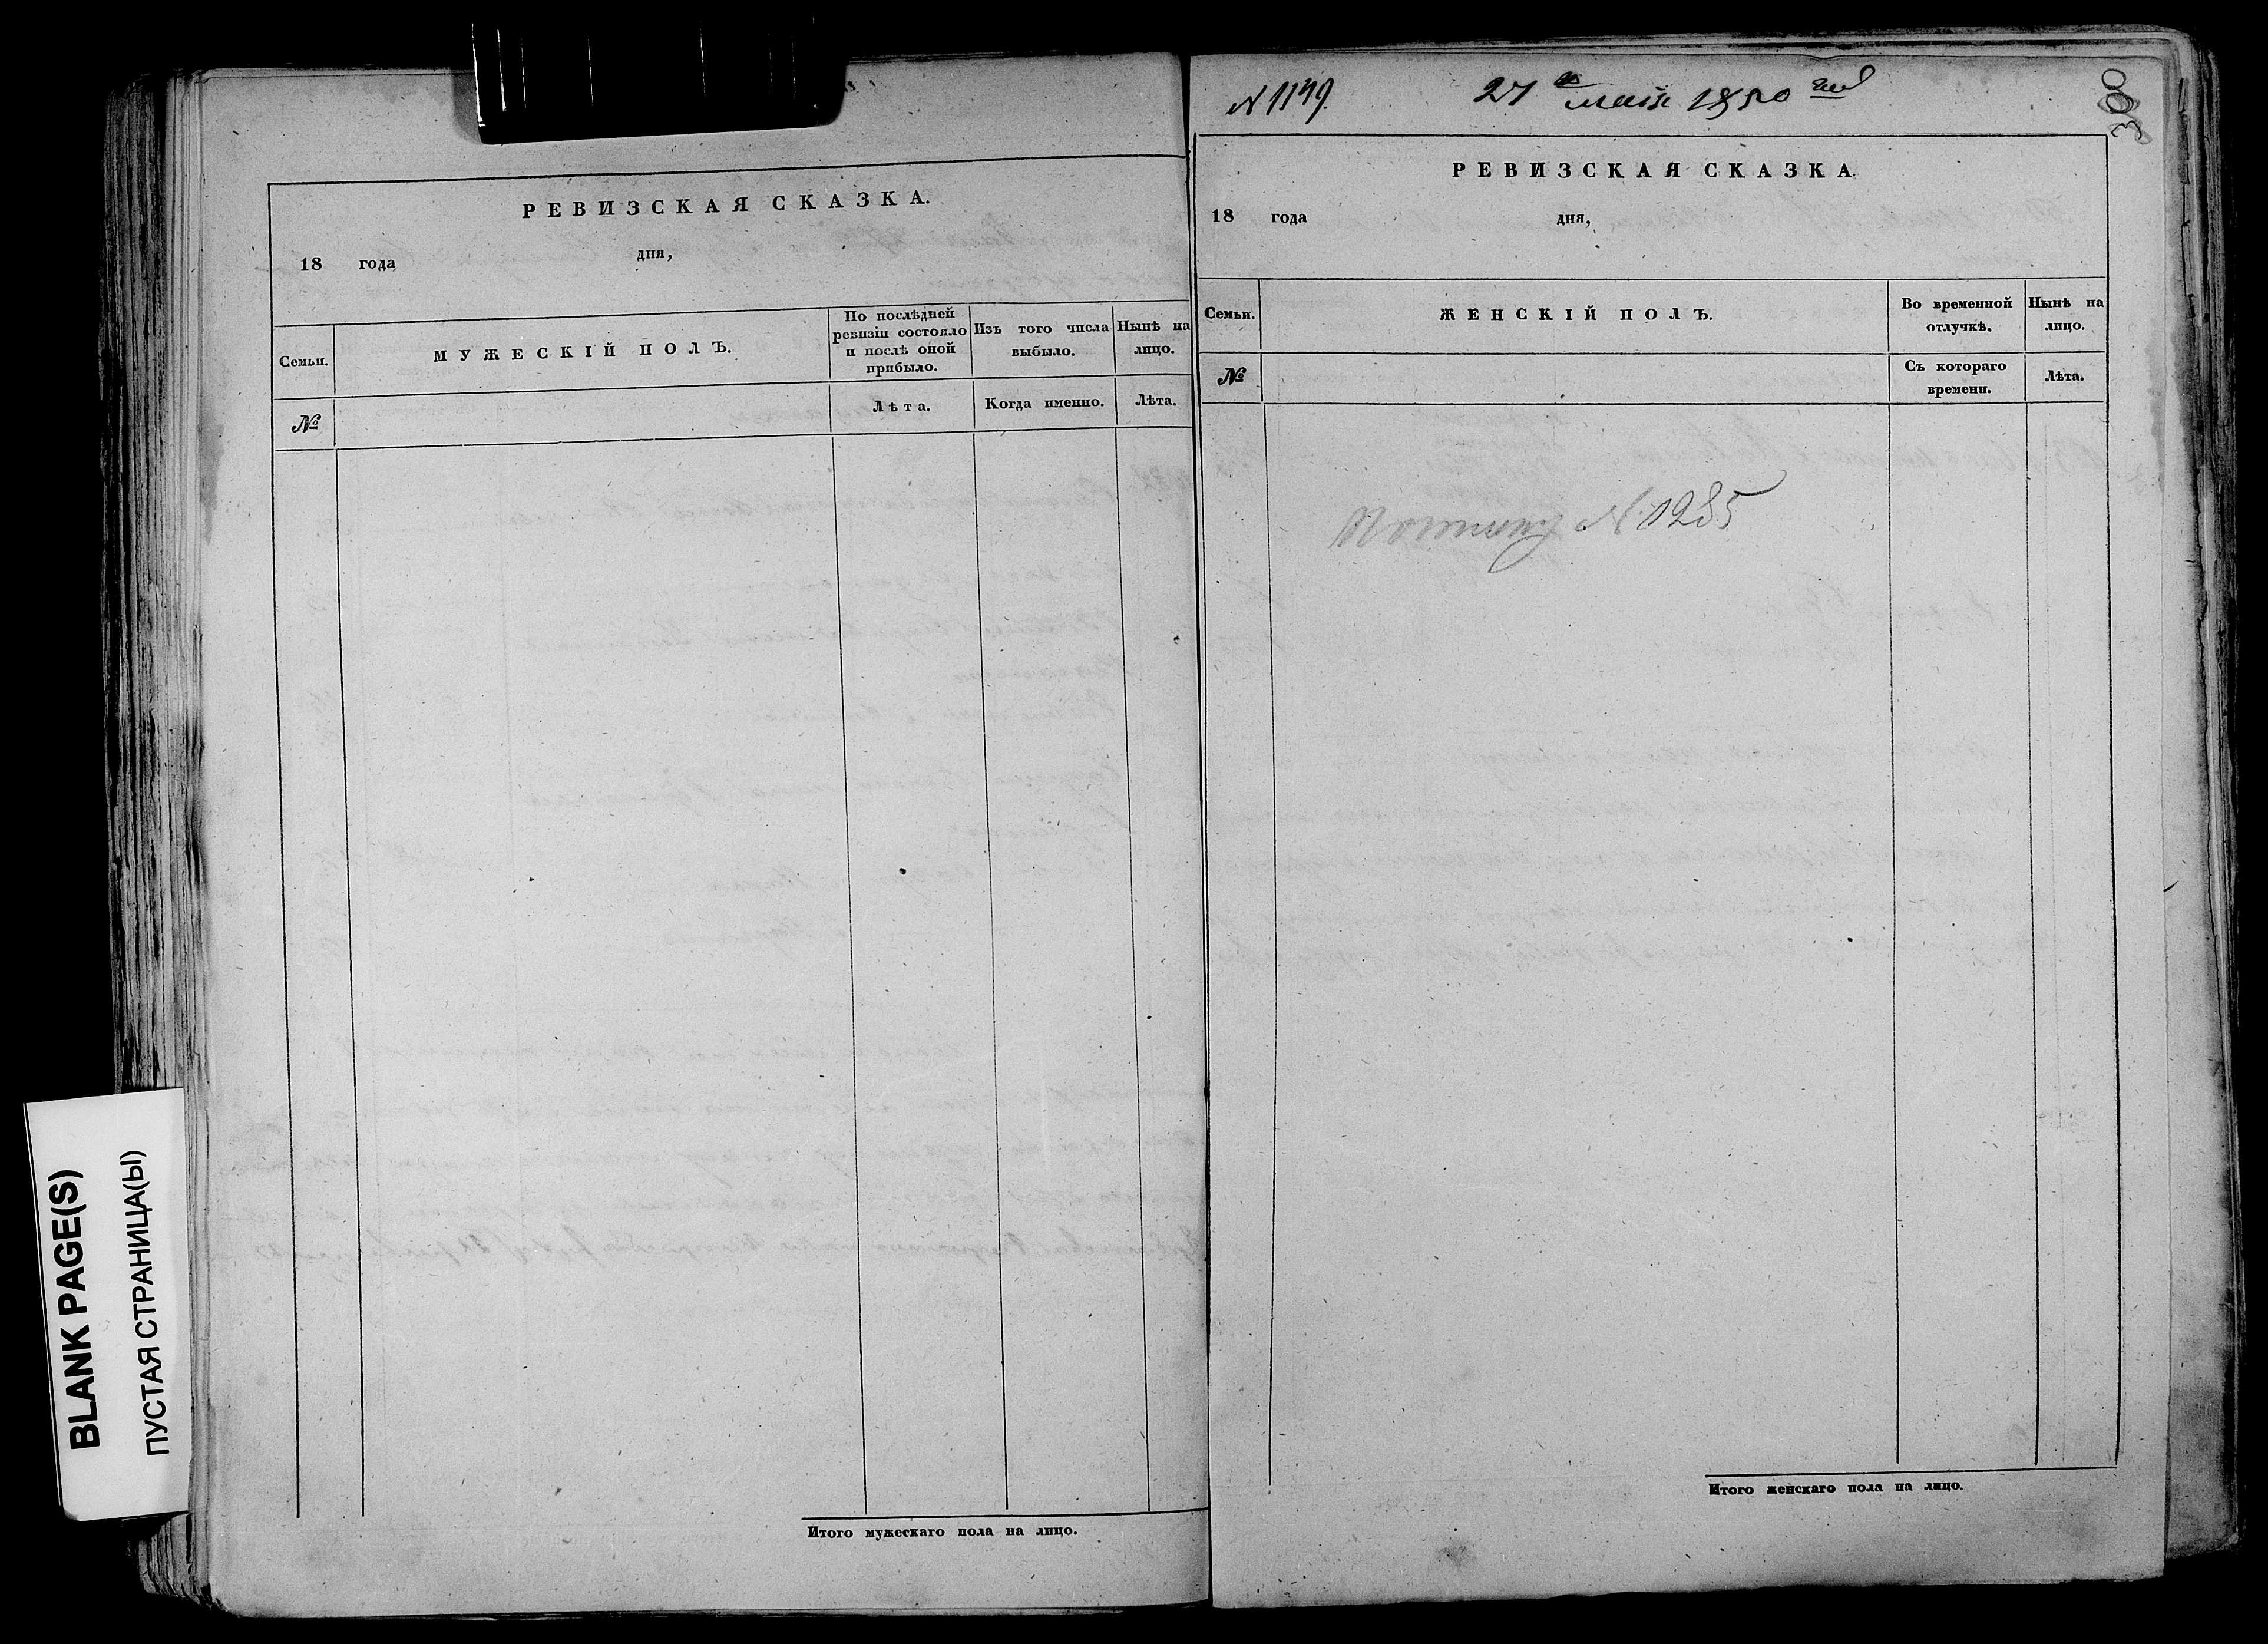 РЕВИЗСКАЯ СКАЗКА.
18 года дня,
Семьи. МУЖЕСКІЙ ПОЛЪ. По послѣдней ревизіи состояло и послѣ оной прибыло. Изъ того числа выбыло. Нынѣ на лицо.
№ Лѣта. Когда именно. Лѣта.
Итого мужескаго пола на лицо.
BLANK PAGE(S)
ПУСТАЯ СТРАНИЦА(Ы)
N 1149. 27 маія 1850 300
РЕВИЗСКАЯ СКАЗКА.
18 года дня,
Семьи. ЖЕНСКІЙ ПОЛЪ. Во временной отлучкѣ. Нынѣ на лицо.
№ Съ котораго времени. Лѣта.
N 1285
Итого женскаго пола на лицо.